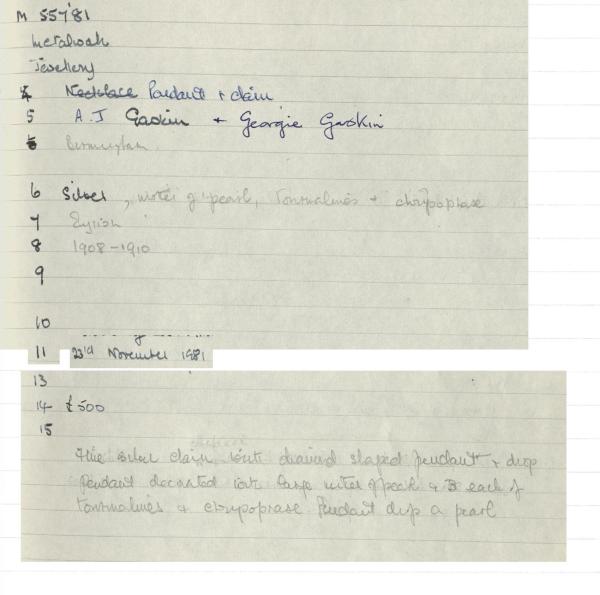 M 55'81
Metalwork
Jewellery
4 Necklace Pendant + chain
5 A.J Gaskin + Georgie Gaskin
Birmingham
6 Silver, mother of pearl, tourmalines + chrysoprase
7 English
8 1908-1910
9
10
11 23rd November 1981
13
14 £500
15
Fine silver chain with diamond shaped pendant + drop
Pendant decorated with large mother of pearl + 3 each of
tourmalines + chrysoprase. Pendant drop a pearl